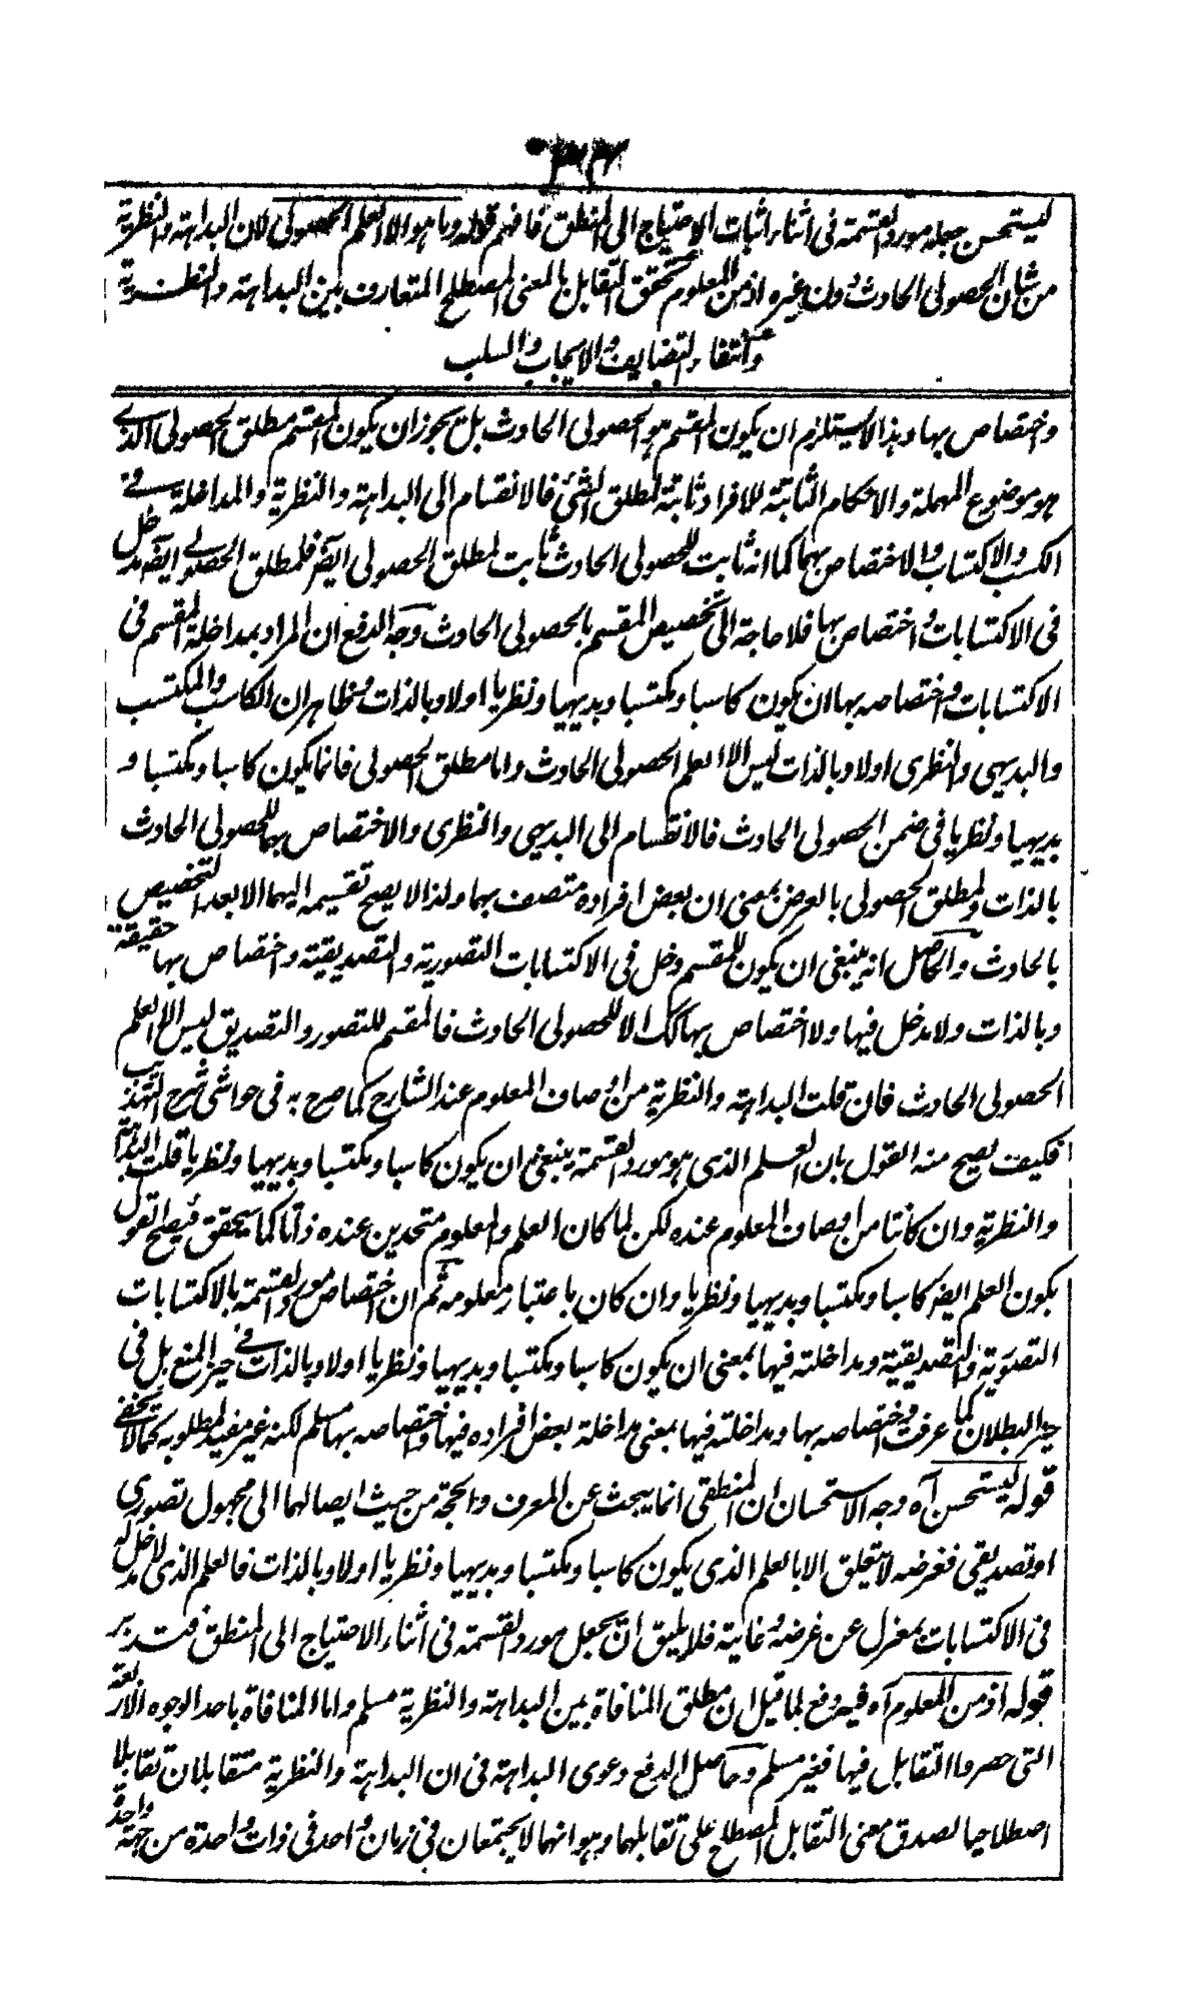 ليستحسن جعله مورد القسمة فى اثناء اثبات الاحتياج الى المنطق فافهم قوله وما هو الا العلم الحصولى لان البداهة والنظرية
من شان الحصولى الحادث دون غيره اذ من المعلوم تحقق التقابل بالمعنى المصطلح المتعارف بين البداهة والنظرية
وانتفاء التضايف والايجاب والسلب
واختصاص بها وهذا لا يستلزم ان يكون المقسم هو الحصولى الحادث بل يجوز ان يكون المقسم مطلق الحصولى الذى
هو موضوع المهملة والاحكام الثابتة للافراد ثابتة لمطلق الشئ فالانقسام الى البداهة والنظرية والمداخلة فى
الكسب والاكتساب والاختصاص بهما كما انه ثابت للحصولى الحادث ثابت لمطلق الحصولى ايضا فلمطلق الحصولى ايضا مدخل
فى الاكتسابات واختصاص بها فلا حاجة الى تخصيص المقسم بالحصولى الحادث وجه الدفع ان المراد بمداخلة المقسم فى
الاكتسابات واختصاصه بها ان يكون كاسبا ومكتسبا وبديهيا ونظريا اولا وبالذات وظاهر ان الكاسب والمكتسب
والبديهى والنظرى اولا وبالذات ليس الا العلم الحصولى الحادث واما مطلق الحصولى فانما يكون كاسبا ومكتسبا و
بديهيا ونظريا فى ضمن الحصولى الحادث فالانقسام الى البديهى والنظرى والاختصاص بهما للحصولى الحادث
بالذات ولمطلق الحصولى بالعرض بمعنى ان بعض افراده متصف بهما ولذا لا يصح تقسيمه اليهما الا بعد التخصيص
بالحادث والحاصل انه ينبغى ان يكون للمقسم دخل فى الاكتسابات التصورية والتصديقية واختصاص بها حقيقة
وبالذات ولا مدخل فيها ولا اختصاص بها كك الا للحصولى الحادث فالمقسم للتصور والتصديق ليس الا العلم
الحصولى الحادث فان قلت البداهة والنظرية من اوصاف المعلوم عند الشارح كما صرح به فى حواشى شرح التهذيب
فكيف يصح منه القول بان العلم الذى هو مورد القسمة ينبغى ان يكون كاسبا ومكتسبا وبديهيا ونظريا قلت البداهة
والنظرية وان كانتا من اوصاف المعلوم عنده لكن لما كان العلم والمعلوم متحدين عنده ذاتا كما سيحقق فيصح القول
بكون العلم ايضا كاسبا ومكتسبا وبديهيا ونظريا وان كان باعتبار معلومه ثم ان اختصاص مورد القسمة بالاكتسابات
التصورية والتصديقية ومداخلته فيها بمعنى ان يكون كاسبا ومكتسبا وبديهيا ونظريا اولا وبالذات فى حيز المنع بل فى
حيز البطلان كما عرفت واختصاصه بها ومداخلته فيها بمعنى مداخلة بعض افراده فيها واختصاصه بها مسلم لكنه غير مفيد لمطلوبه كما لا يخفى
قوله ليستحسن آه وجه الاستحسان ان المنطقى انما يبحث عن المعرف والحجة من حيث ايصالهما الى مجهول تصورى
او تصديقى فغرضه لا يتعلق الا بالعلم الذى يكون كاسبا ومكتسبا وبديهيا ونظريا اولا وبالذات فالعلم الذى لا مدخل له
فى الاكتسابات بمعزل عن غرضه وغايته فلا يليق ان يجعل مورد القسمة فى اثناء الاحتياج الى المنطق فتدبر
قوله اذ من المعلوم آه فيه دفع لما قيل ان مطلق المنافاة بين البداهة والنظرية مسلم واما المنافاة باحد الوجوه الاربعة
التى حصروا التقابل فيها فغير مسلم وحاصل الدفع دعوى البداهة فى ان البداهة والنظرية متقابلان تقابلا
اصطلاحيا لصدق معنى التقابل المصطلح على تقابلهما وهو انهما لا يجتمعان فى زمان واحد فى ذات واحدة من جهة واحدة